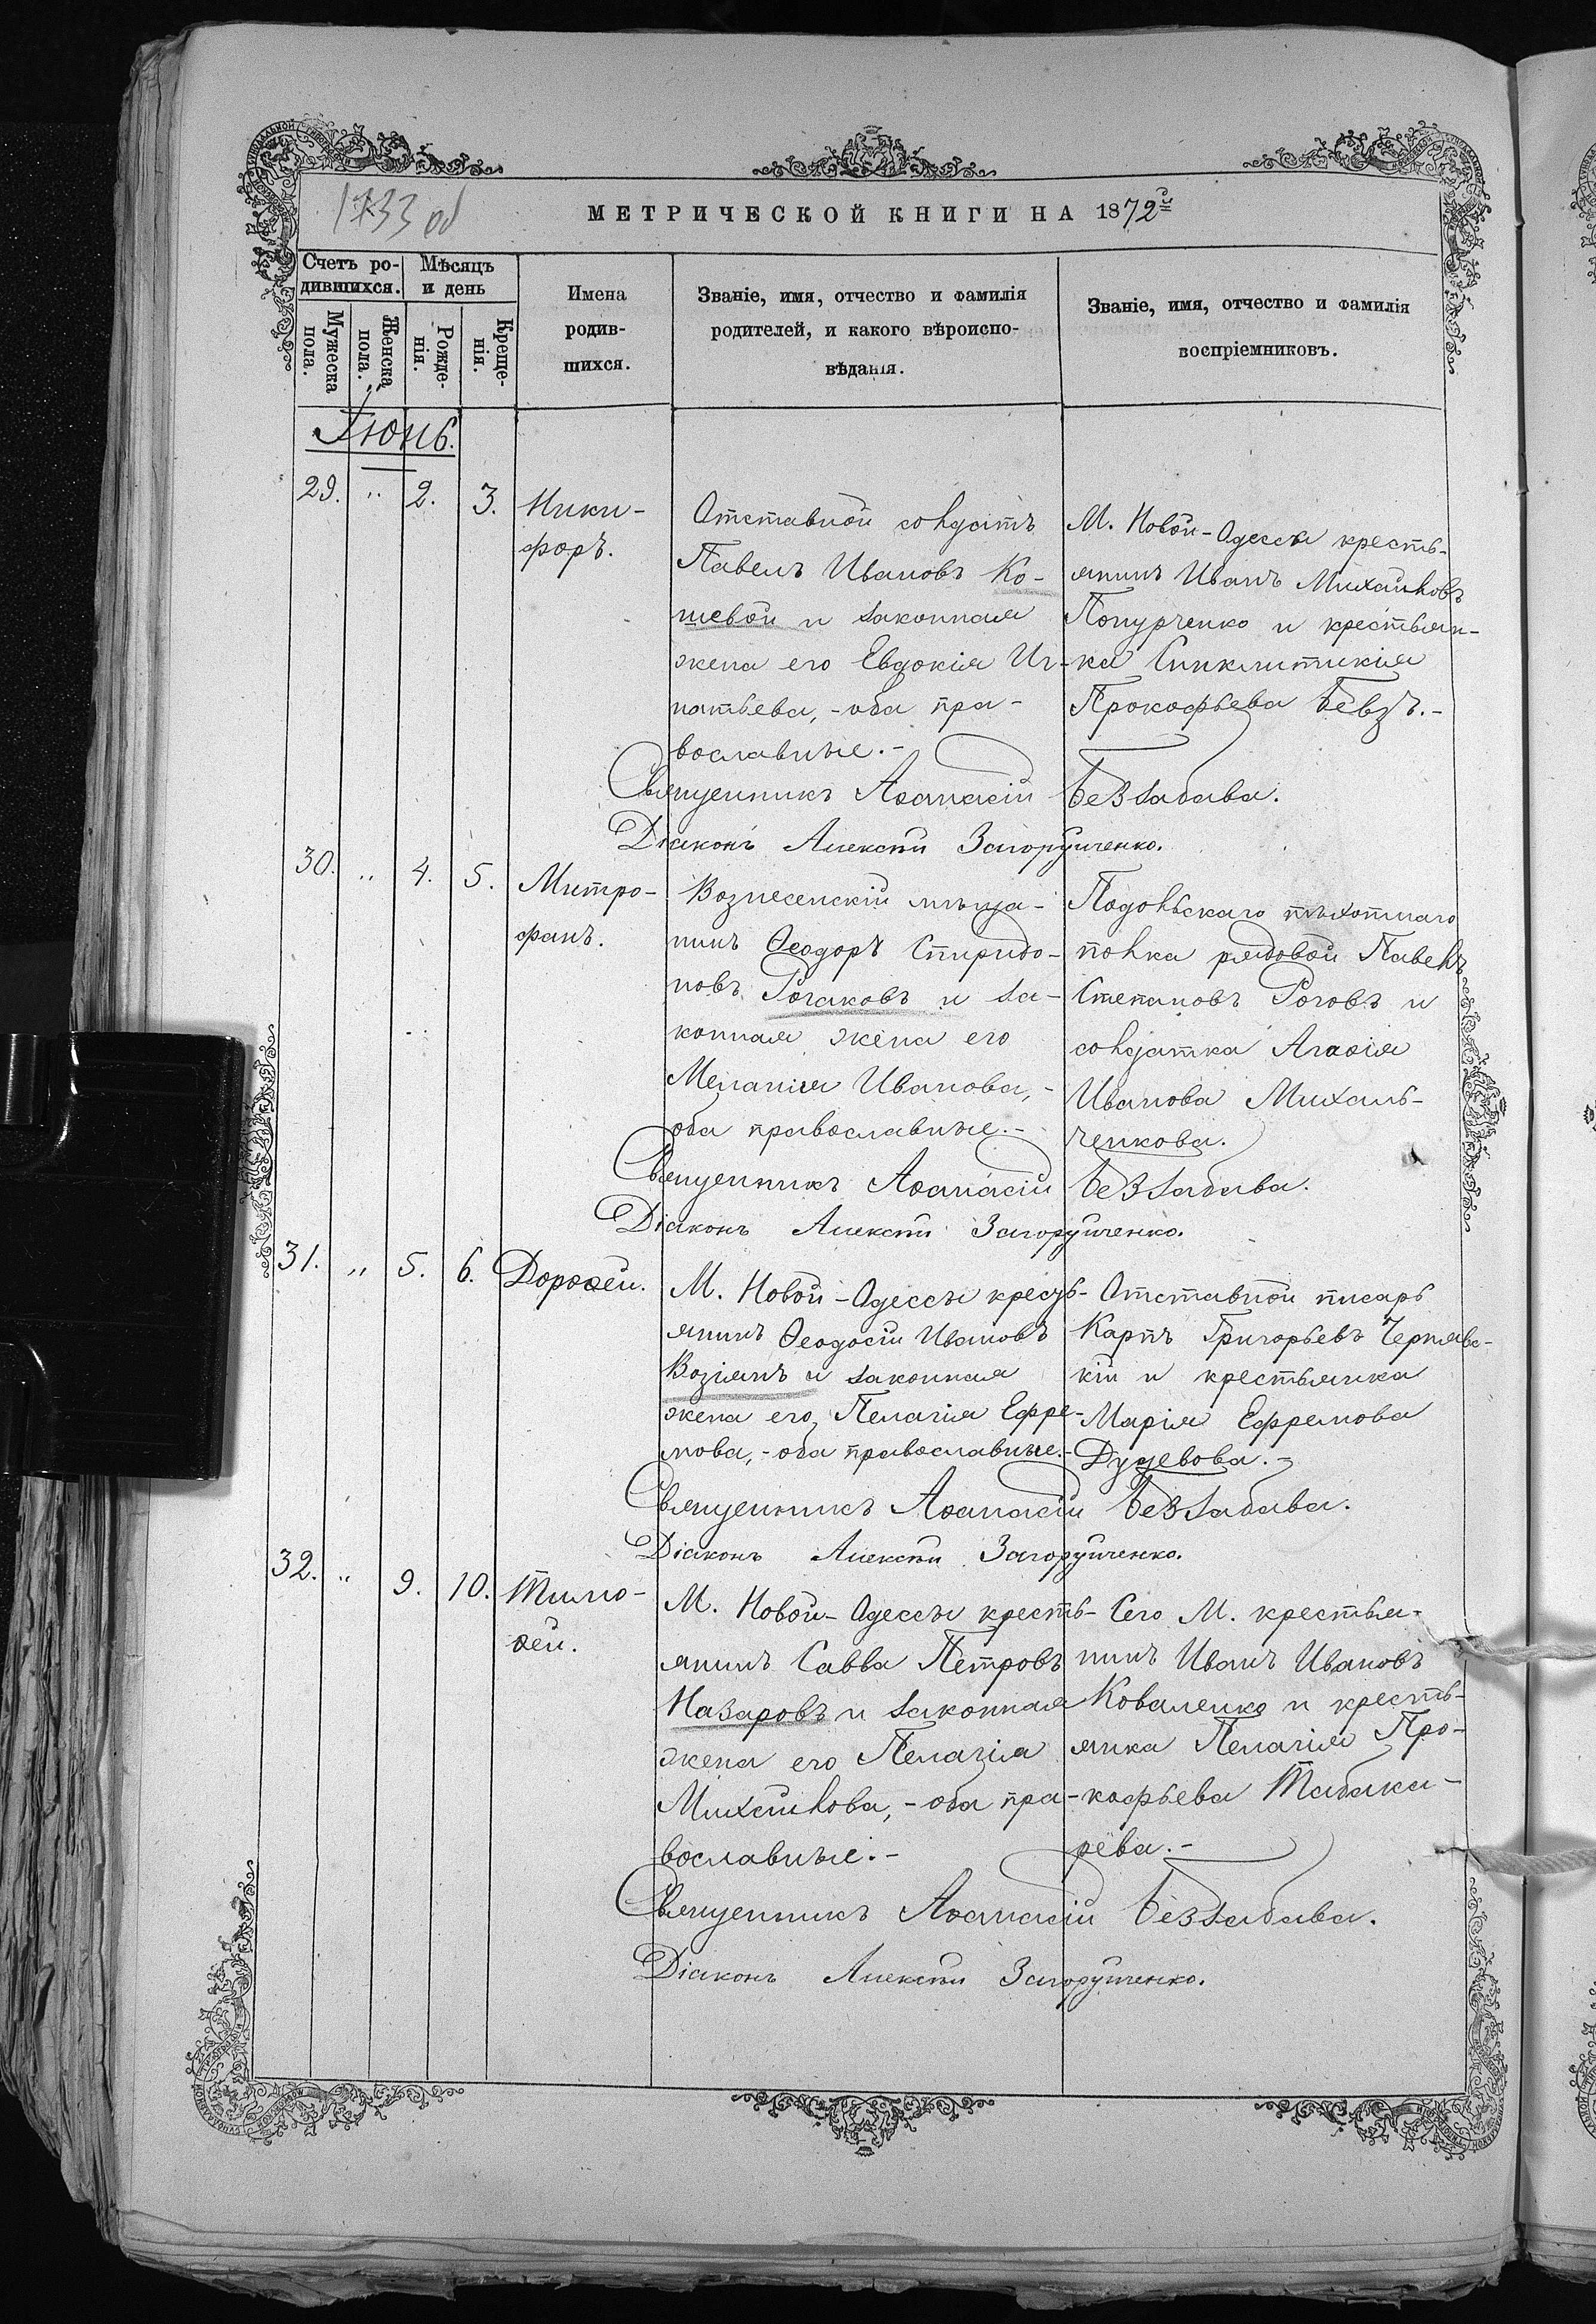 1733 об
МЕТРИЧЕСКОЙ КНИГИ НА 1872й
Счетъ ро-
дившихся.
Мѣсяцъ
и день
Мужеска
пола.
Женска
пола.
Рожде-
нія.
Креще-
нія.
Имена
родив-
шихся.
Званіе, имя, отчество и фамилія
родителей, и какого вѣроиспо-
вѣданія.
Званіе, имя, отчество и фамилія
воспріемниковъ.
Іюнь.
29. " 2. 3.
Ники-
форъ.
Отставной солдатъ
Павелъ Ивановъ Ко-
шевой и законная
жена его Евдокія Иг-
натьева, - оба пра-
вославные. -
М. Новой-Одессы кресть-
янинъ Иванъ Михайловъ
Попурченко и крестьян-
ка Синклитикія
Прокофьева Бевзъ. -
Священникъ Аѳанасій Беззабава.
Діаконъ Алексѣй Загоруйченко.
30. " 4. 5.
Митро-
фанъ.
Вознесенскій мѣща-
нинъ Ѳеодоръ Спиридо-
новъ Рогаковъ и за-
конная жена его
Меланія Иванова, -
оба православные. -
Подольскаго пѣхотнаго
полка рядовой Павелъ
Степановъ Роговъ и
солдатка Агаѳія
Иванова Михаль-
ченкова.
Священникъ Аѳанасій Беззабава.
Діаконъ Алексѣй Загоруйченко.
31. " 5. 6.
Дороѳей.
М. Новой-Одессы кресть-
янинъ Ѳеодосій Ивановъ
Возіянъ и законная
жена его, Пелагія Ефре-
мова, - оба православные. -
Отставной писарь
Карпъ Григорьевъ Чернявс-
кій и крестьянка
Марія Ефремова
Дудевова. -
Священникъ Аѳанасій Беззабава.
Діаконъ Алексѣй Загоруйченко.
32. " 9. 10.
Тимо-
ѳей.
М. Новой-Одессы кресть-
янинъ Савва Петровъ
Назаровъ и законная
жена его Пелагія
Михайлова, - оба пра-
вославные. -
Сего М. крестья-
нинъ Иванъ Ивановъ
Коваленко и кресть-
янка Пелагія Про-
кофьева Табака-
рева. -
Священникъ Аѳанасій Беззабава.
Діаконъ Алексѣй Загоруйченко.